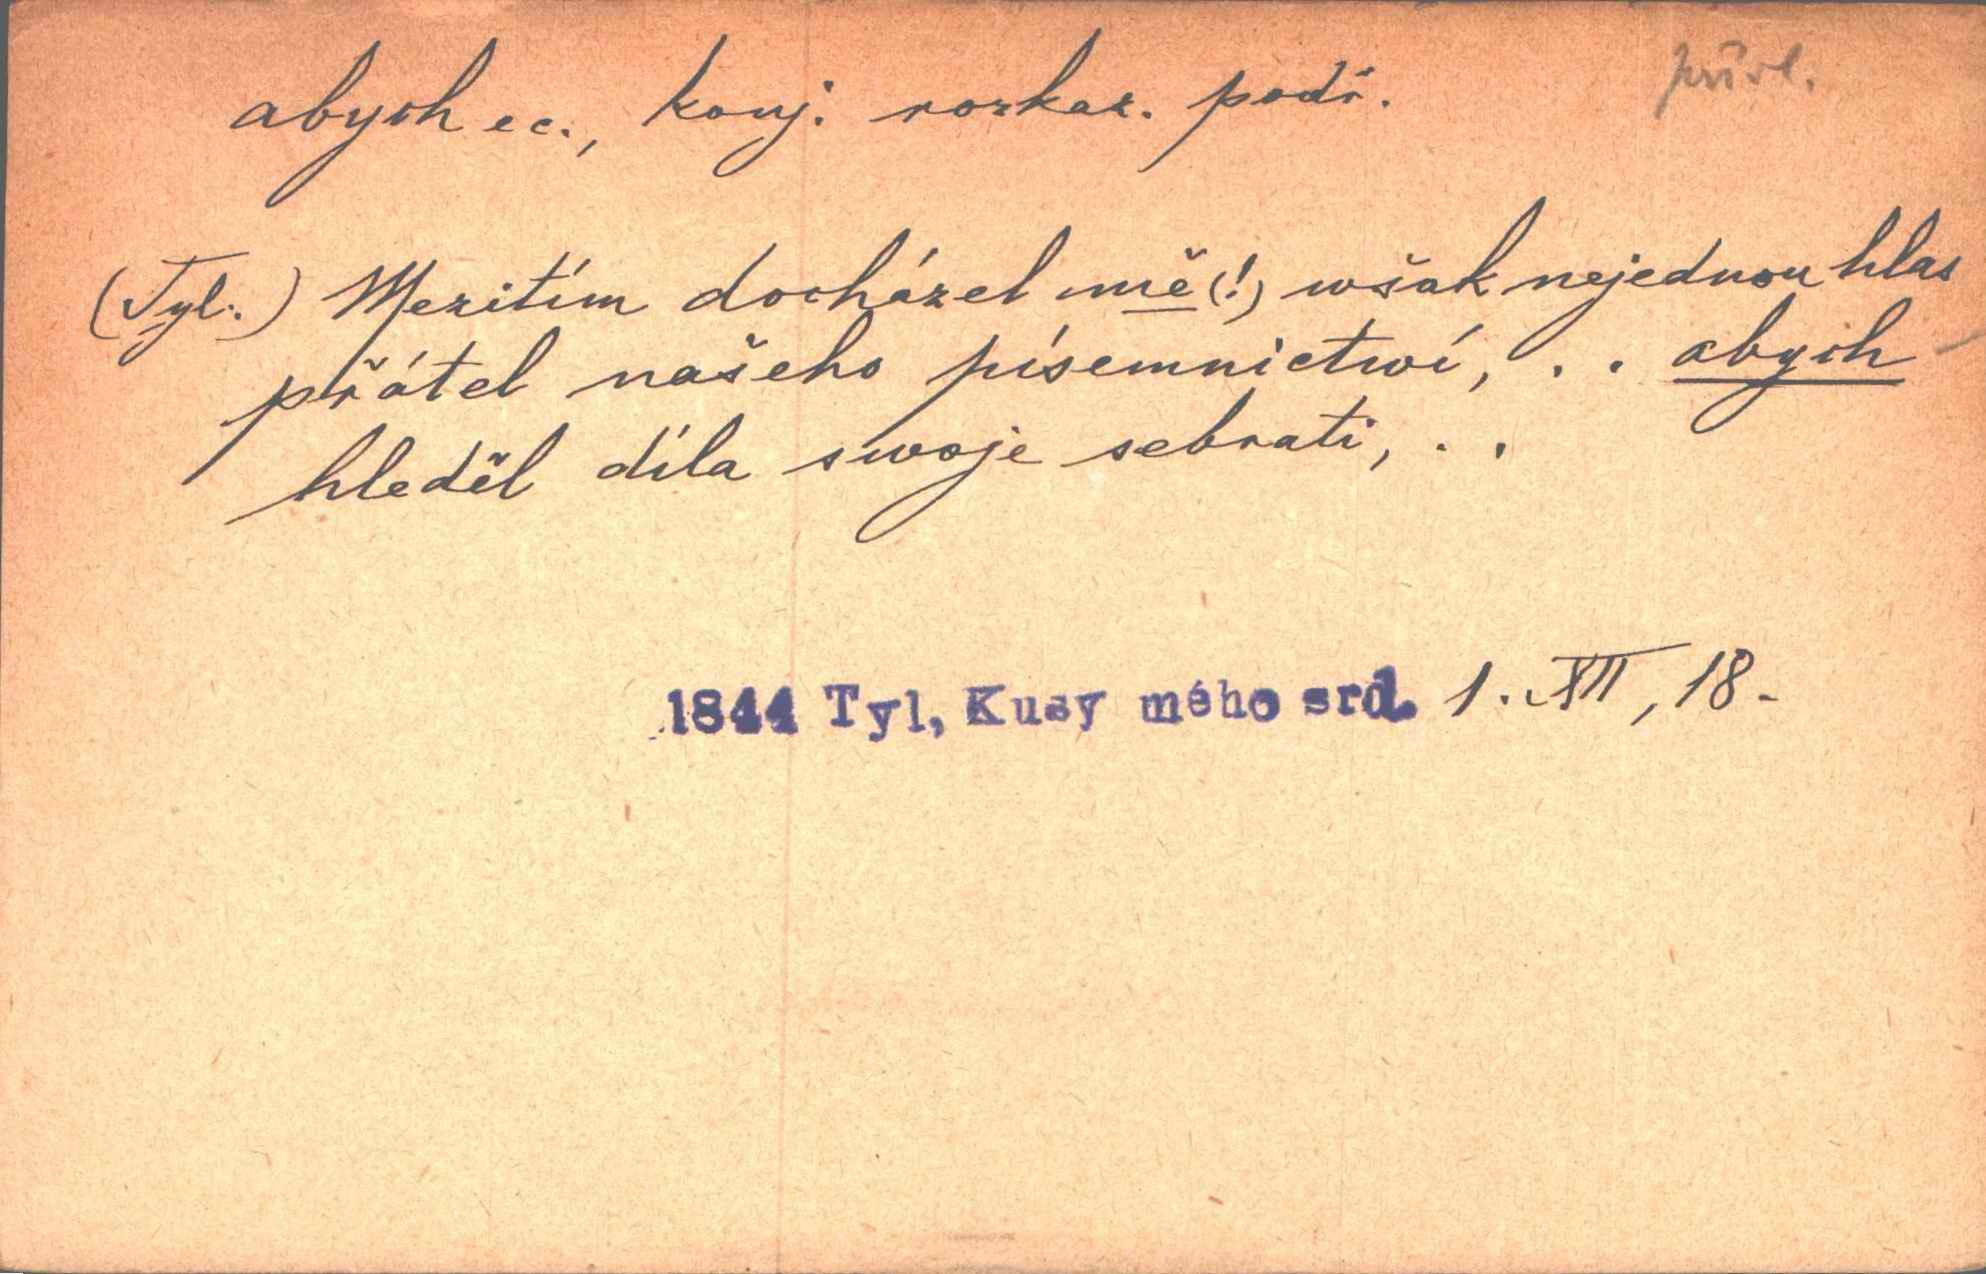 abych ec., konj. rozkaz. podř.
přívl.
(Tyl.) Mezitím docházel mě (!) wšak nejednou hlas
přátel našeho písemnictwí, . . abych
hleděl díla swoje sebrati, . .
1844 Tyl, Kusy mého srd. 1. XII, 18.